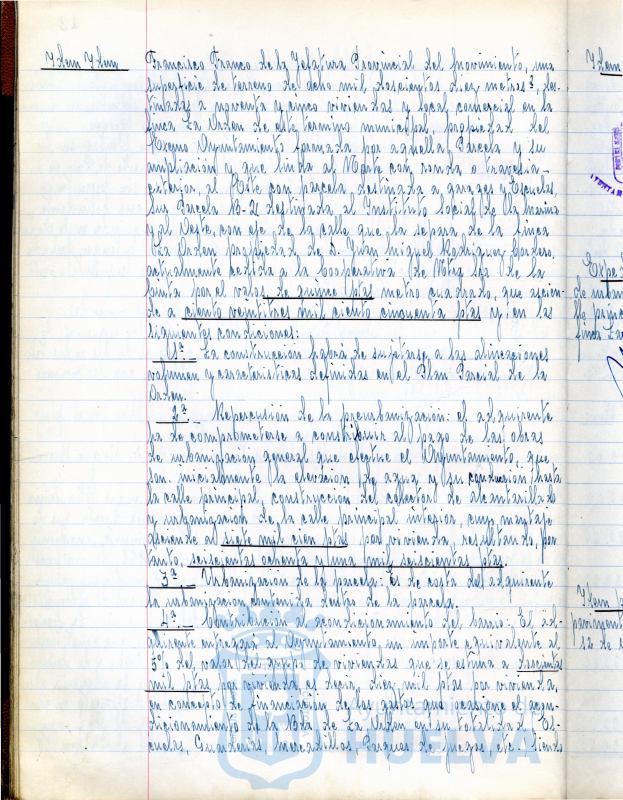 Idem Idem
Francisco Franco de la Jefatura Provincial del Movimiento, una
superficie de terreno de ocho mil doscientos diez metros², des-
tinadas a noventa y cinco viviendas y local comercial en la
finca La Orden de este termino municipal, propiedad del
Excmo Ayuntamiento formada por aquella Parcela y su
ampliación y que linda al Norte con ronda o travesia
exterior, al Este con parcela destinada a garages y Escuelas,
Sur Parcela B-21 destinada al Instituto Social de la Marina
y al Oeste, con eje de la calle que la separa de la finca
La Orden propiedad de D. Juan Miguel Rodriguez Cordero,
actualmente cedida a la Cooperativa de Ntra Sra de la
Cinta por el valor de quince ptas metro cuadrado, que ascien-
de a ciento veintitres mil ciento cincuenta ptas y en las
siguientes condiciones:
1ª.- La construccion habrá de sujetarse a las alineaciones
volumen y caracteristicas definidas en el Plan Parcial de la
Orden.
2ª.- Repercusión de la preurbanizacion: el adquirente
ha de comprometerse a contribuir al pago de las obras
de urbanizacion general que efectue el Ayuntamiento, que
son inicialmente la elevacion de agua y su conduccion hasta
la calle principal, construccion del colector de alcantarillado
y urbanizacion de la calle principal interior, cuyo montaje
asciende al siete mil cien ptas por vivienda, resultando, por
tanto, seiscientas ochenta y una mil seiscientas ptas.
3ª.- Urbanizacion de la parcela: Es de costa del adquirente
la urbanizacion dentro de la parcela.
4ª.- Contribucion al condicionamiento del barrio: El ad-
quirente entregará al Ayuntamiento un importe equivalente al
5% del valor del grupo de viviendas que se estima a doscientas
mil ptas por vivienda es decir, diez mil ptas por vivienda,
en concepto de financiación de los gastos que ocasione el acon-
dicionamiento de la Bda de La Orden en su totalidad (Es-
cuelas, Guarderias, Mercadillos, Parques de juegos, etc. siendo
HUELVA
Idem
Expe
de urban
finca La
Idem